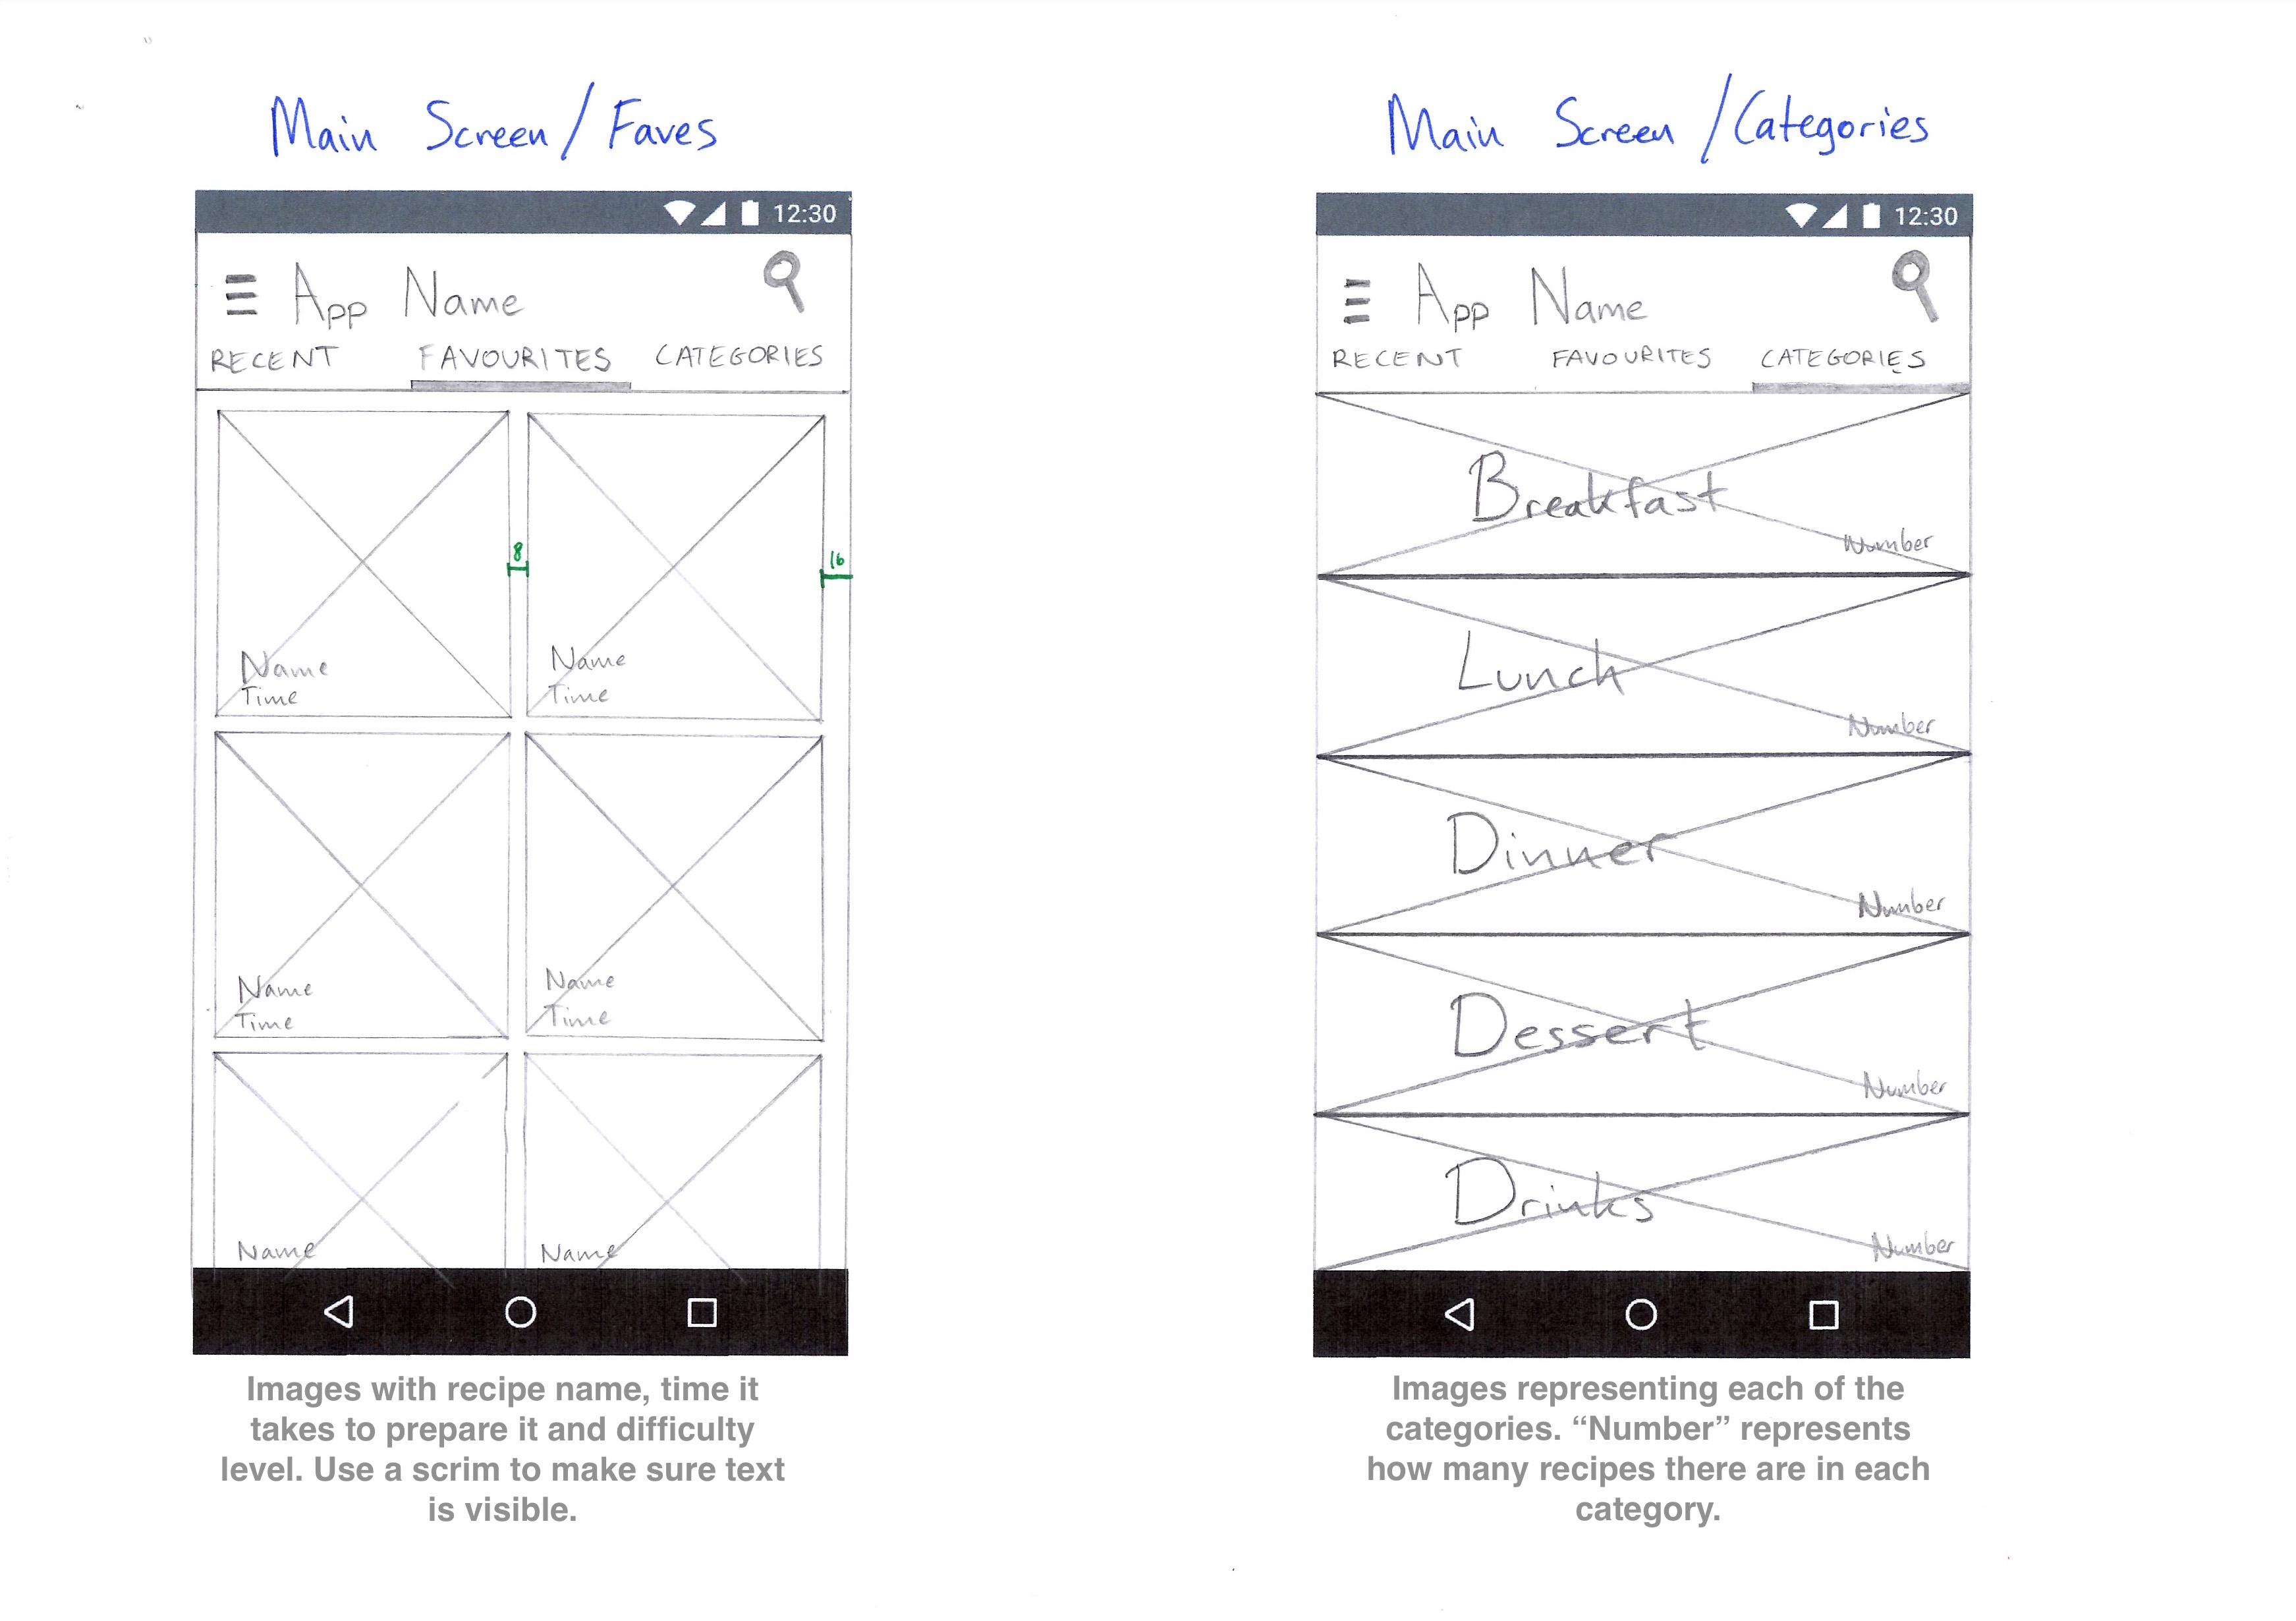 Main Screen / Faves
12:30
App Name
RECENT FAVOURITES CATEGORIES
8
16
Name
Time
Name
Time
Name
Time
Name
Time
Name
Name
Images with recipe name, time it
takes to prepare it and difficulty
level. Use a scrim to make sure text
is visible.
Main Screen / Categories
12:30
App Name
RECENT FAVOURITES CATEGORIES
Breakfast
Number
Lunch
Number
Dinner
Number
Dessert
Number
Drinks
Number
Images representing each of the
categories. “Number” represents
how many recipes there are in each
category.